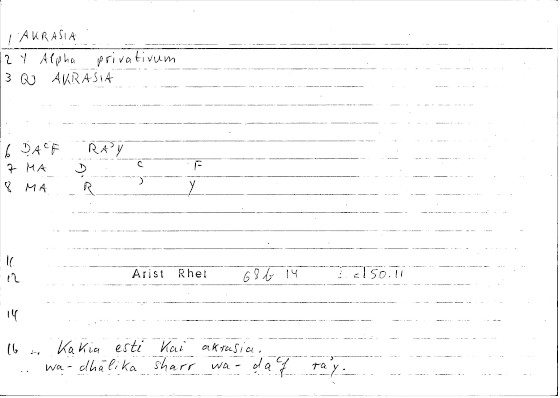 1 AKRASIA
2 Y Alpha privativum
3 QJ AKRASIA
6 ḌAʿF RAʾY
7 MA Ḍ ʿ F
8 MA R ʾ Y
11
12 Arist Rhet 68b 14 : 50.11
14
16 .. Kakia esti kai akrasia.
.. wa-dhālika sharr wa-ḍaʿf raʾy.